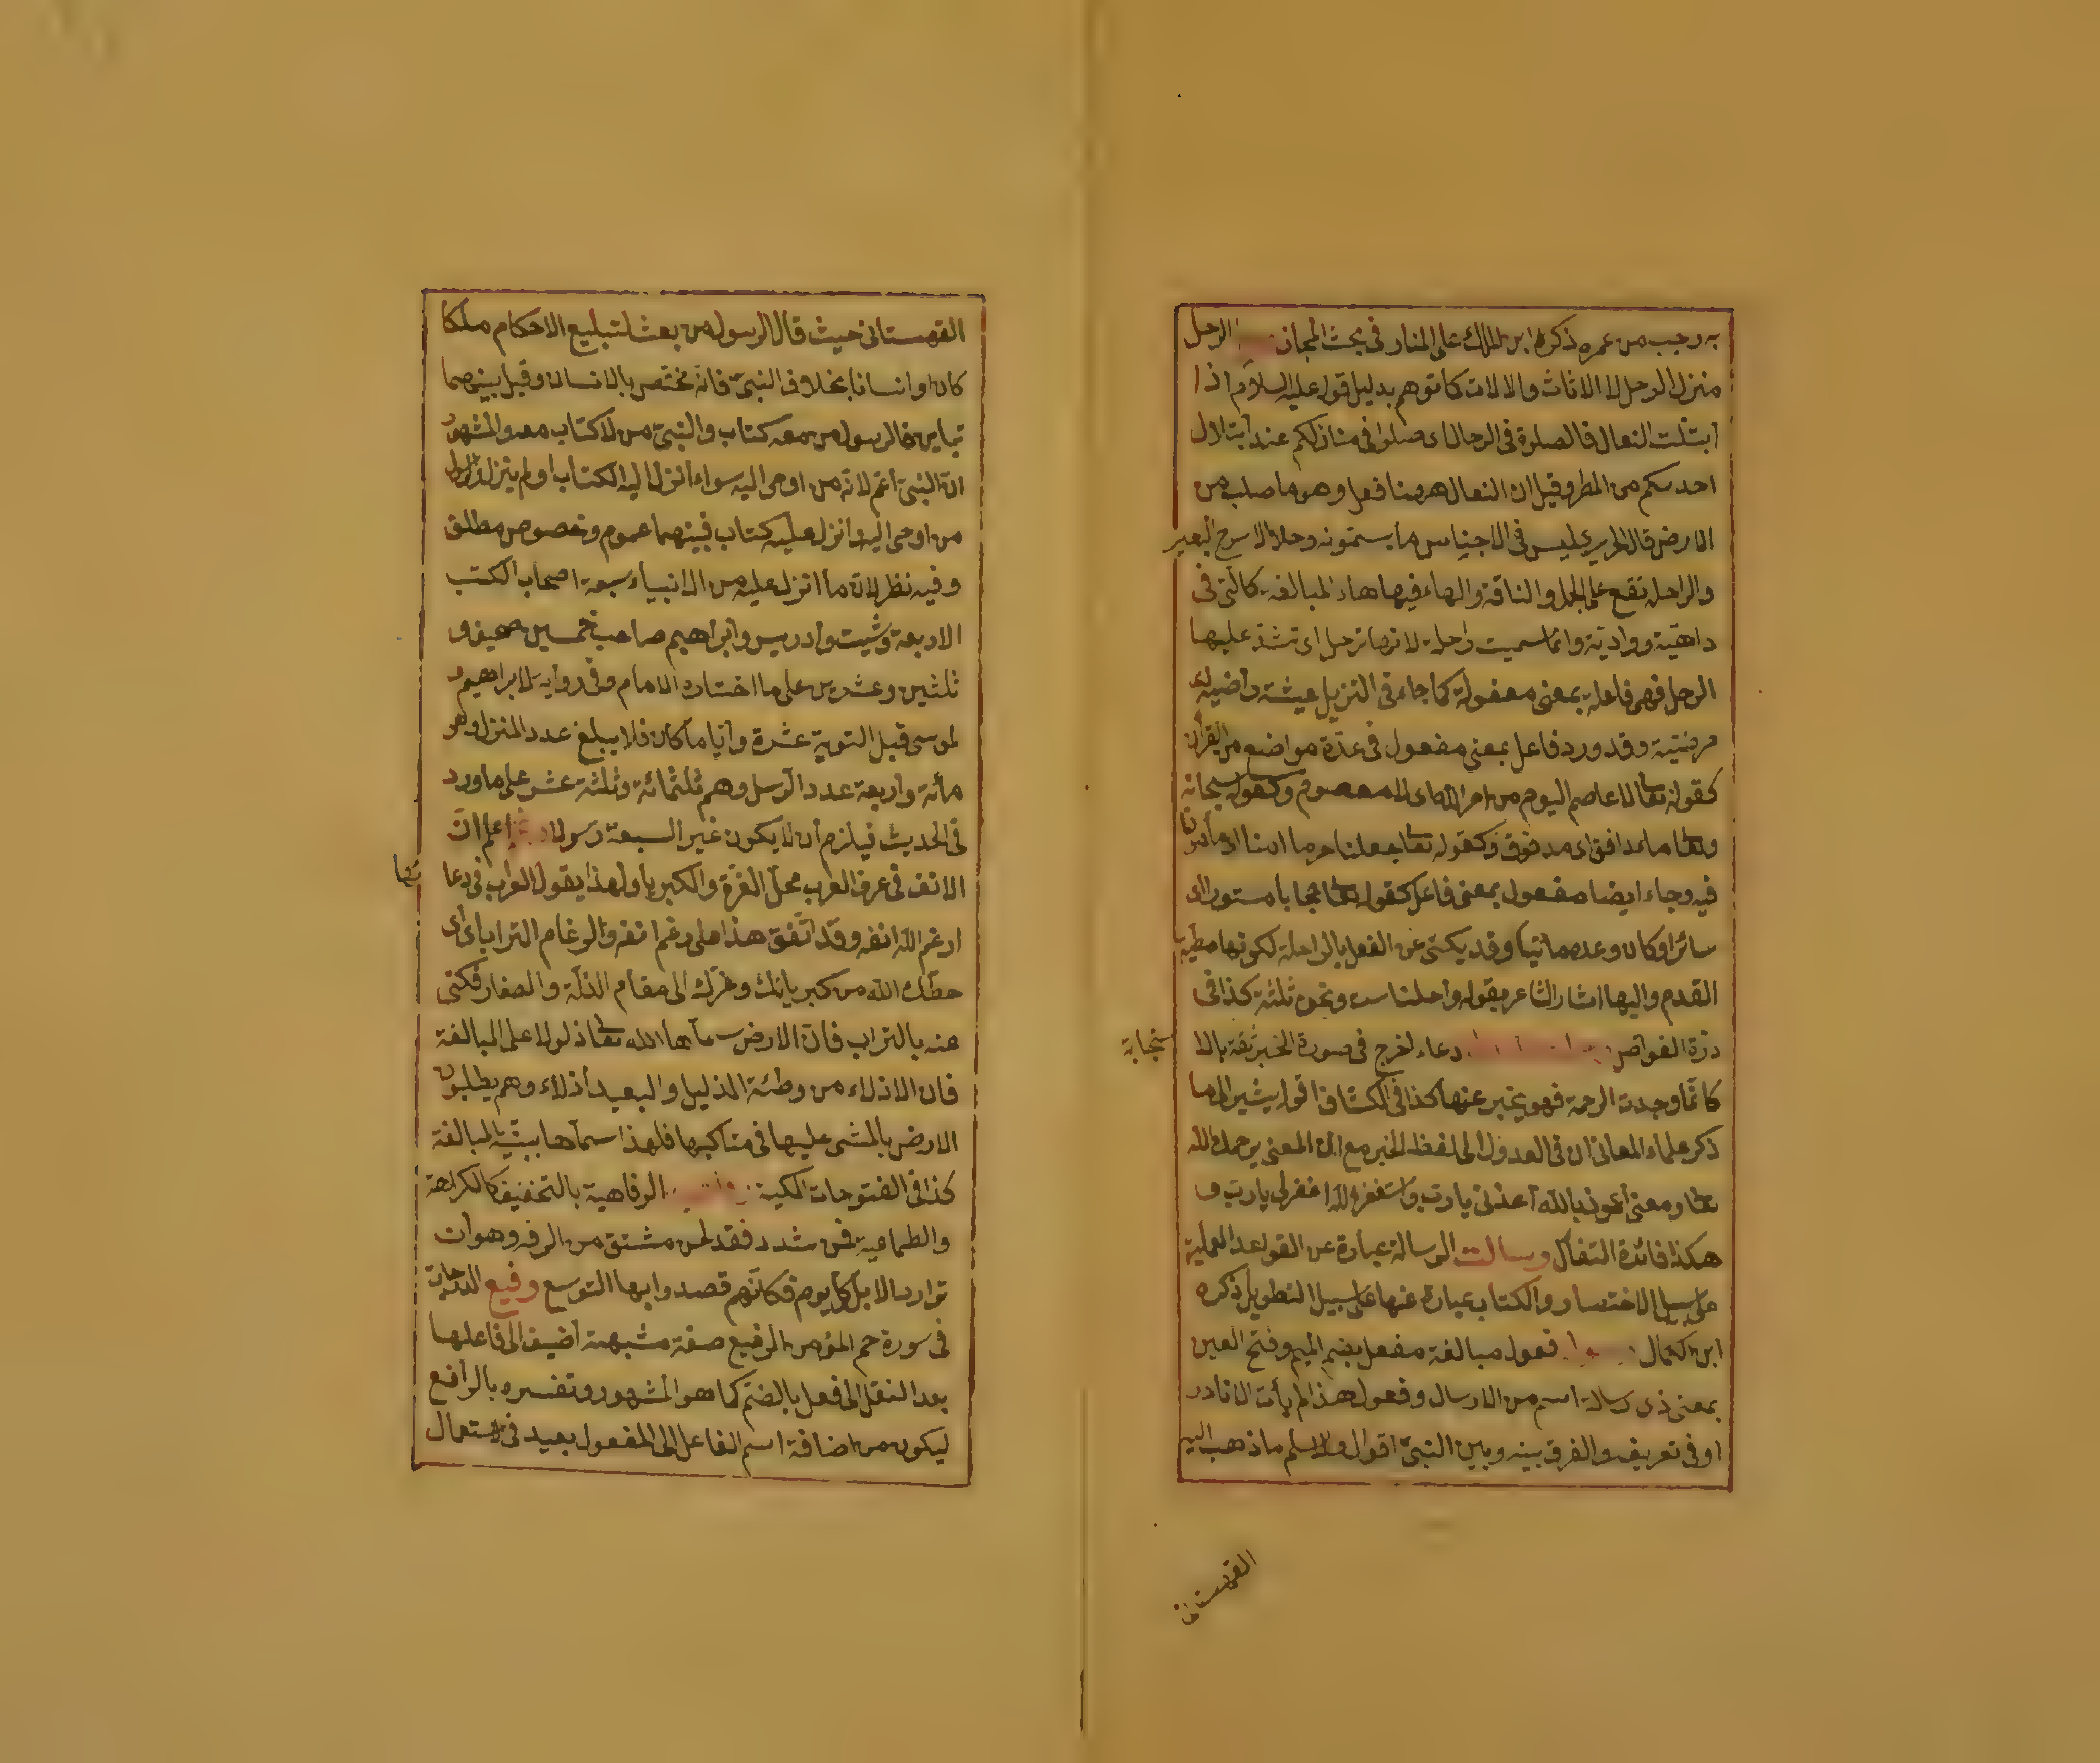 به رجب من عمره ذكره ابن الملك على المنار فى بحث المجاز الرحل
منزل الرحل لا الاثاث والالات كما توهم بدليل قوله عليه السلام اذا
ابتلت النعال فالصلوة فى الرحال اى صلوا فى منازلكم عند ابتلال
احديكم من المطر وقيل ان النعال ههنا فعل وهو ما صلب من
الارض قال الحريرى ليس فى الاجناس ما يسمونه رحلا الا سرج البعير
والراحلة تقع على الجمل والناقة والهاء فيها هاء المبالغة كالتى فى
داهية وراوية وانما سميت راحلة لانها ترحل اى تشد عليها
الرحل فهى فاعلة بمعنى مفعولة كما جاء فى التنزيل عيشة راضية اى
مرضية وقد ورد فاعل بمعنى مفعول فى عدة مواضع من القرأن
كقوله تعالى لا عاصم اليوم من امر الله اى لا معصوم وكقوله سبحانه
وتعالى ماء دافق اى مدفوق وكقوله تعالى جعلنا حرما امنا اى مأمونا
فيه وجاء ايضا مفعول بمعنى فاعل كقوله تعالى حجابا مستورا اى
ساترا وكان وعده مأتيا وقد يكنى عن الفعل بالراحلة لكونها مطية
القدم واليها اشار الشاعر بقوله رواحلنا ست ونحن ثلثة كذا فى
درة الغواص دعاء اخرج فى صورة الخبر ثقة بالا ستجابة
كانما وجدت الرحمة فهو يخبر عنها كذا فى الكشاف اقول يشير الى ما
ذكر علماء المعانى ان فى العدول الى لفظ الخبر مع ان المعنى يرحمك الله
تعالى ومعنى اعوذ بالله أعذنى يا رب واستغفر الله اغفر لى يا رب و
هكذا فائدة التفأل رسالت الرسالة عبارة عن القواعد العملية
على سبيل الاختصار والكتاب عبارة عنها على سبيل التطويل ذكره
ابن كمال فعول مبالغة مفعل بضم الميم وفتح العين
بمعنى ذى رسالة اسم من الارسال وفعول هذا لم يأت الا نادر
او فى تعريفه والفرق بينه وبين النبى اقوال والاسلم ما ذهب اليه
القهستانى
القهستانى حيث قال الرسول من بعث لتبليغ الاحكام ملكا
كان او انسانا بخلاف النبى فانه مختص بالانسان وقيل بينهما
تباين فالرسول من معه كتاب والنبى من لا كتاب معه والمشهور
ان النبى أعم لانه من اوحى اليه سواء انزل اليه الكتاب او لم ينزل والرسول
من اوحى اليه وانزل عليه كتاب فبينهما عموم وخصوص مطلق
وفيه نظر لان ما انزل عليه من الانبياء سبعة اصحاب الكتب
الاربعة وشيت وادريس وابراهيم صاحب خمسين صحيفة و
ثلثين وعشرين على ما اختاره الامام وفى رواية لابراهيم و
لموسى قبل التورية عشرة وايا ما كان فلا يبلغ عدد المنزل وهو
مأنة واربعة عدد الرسل وهم ثلثمائة وثلثة عشر على ما ورد
فى الحديث فيلزم أن لا يكون غير السبعة رسولا اعلم ان
الانف فى عرف العرب محل العزة والكبرياء ولهذا يقول العرب فى دعائها
ارغم الله انفه وقد اتفق هذا على رغم انفه والرغام التراب اى
حطك الله من كبريائك وعزك الى مقام الذلة والصغار فكنى
عنه بالتراب فان الارض سماها الله تعالى ذلولا على المبالغة
فان الاذلاء من وطئة الذليل والبعيد أذلاء وهم يطلبون
الارض بالمشى عليها فى مناكبها فلهذا سماها ببنية المبالغة
كذا فى الفتوحات المكية الرفاهية بالتخفيف كالكراهة
والطماعية فمن شدد فقد لحن مشتق من الرفه وهو ان
ترد الابل كل يوم فكانهم قصدوا بها التوسع رفيع الدرجات
فى سورة حم المؤمن الرفيع صفة مشبهة أضيف الى فاعلها
بعد النقل الى فعل بالضم كما هو المشهور وتفسيره بالرافع
ليكون من اضافة اسم الفاعل الى المفعول بعيد فى الاستعمال